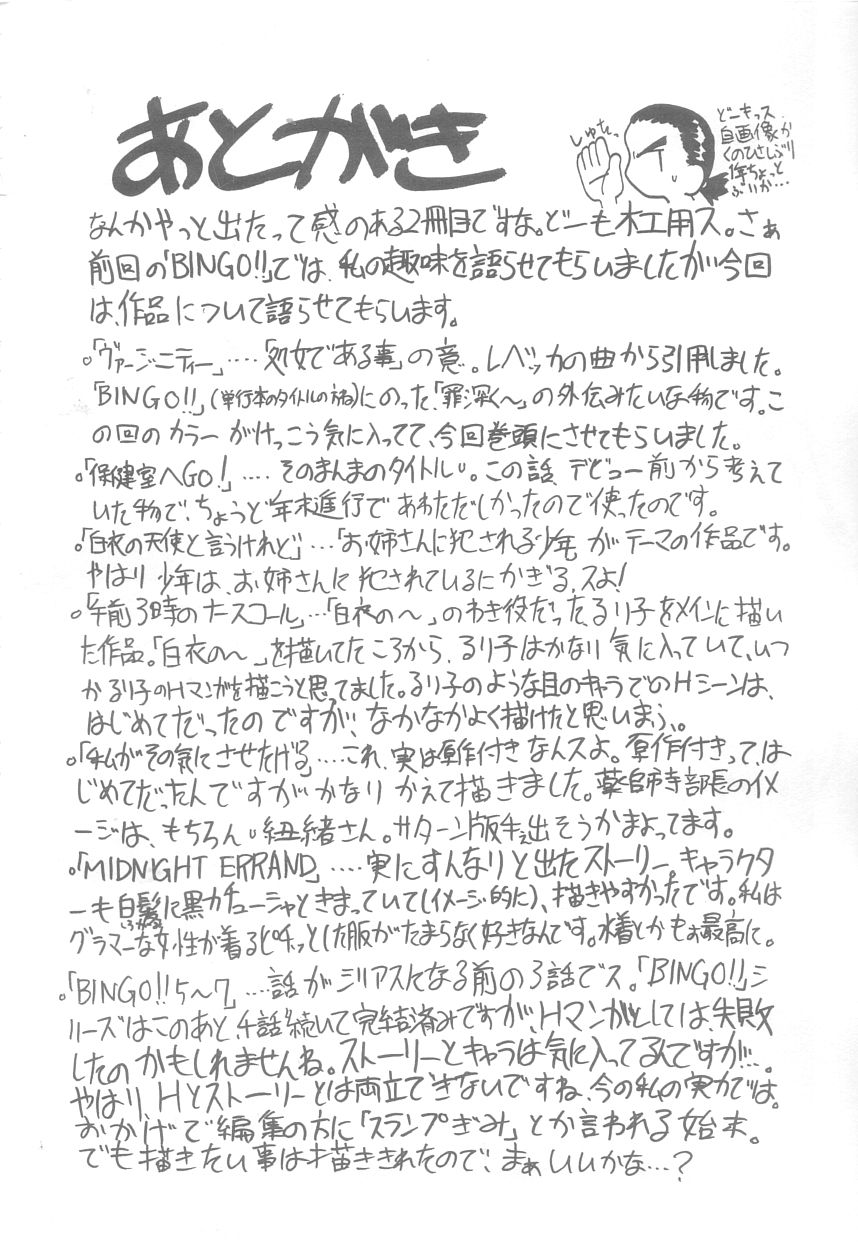 あとがき
しゅたっ
どーもっス
自画像か
くのひさしぶり
1年ちょっと
ぶりか…
なんかやっと出たって感のある2冊目ですな。どーも木工用ス。さぁ
前回の「BINGO!!」では、私の趣味を語らせてもらいましたが今回
は、作品について語らせてもらいます。
。「ヴァージニティー」‥‥「処女である事」の意。レベッカの曲から引用しました。
「BINGO!!」(単行本のタイトルの方ね)にのった、「罪深く〜」の外伝みたいな物です。こ
の回のカラーがけっこう気に入ってて、今回巻頭にさせてもらいました。
。「保健室へGO!」‥‥そのまんまのタイトル。この話、デビュー前から考えて
いた物で、ちょうど年末進行であわただしかったので使ったのです。
。「白衣の天使と言うけれど」…「お姉さんに犯される少年」がテーマの作品です。
やはり少年は、お姉さんに犯されているにかぎる、スよ!
。「午前3時のナースコール」…「白衣の〜」のわき役だった、るり子をメインに描い
た作品。「白衣の〜」を描いてたころから、るり子はかなり気に入っていて、いつ
かるり子のHマンガを描こうと思ってました。るり子のような目のキャラでのHシーンは、
はじめてだったのですが、なかなかよく描けたと思いまふ。
。「私がその気にさせたげる」‥‥これ、実は原作付きなんスよ。原作付きっては
じめてだったんですがかなりかえて描きました。薬師寺部長のイメ
ージは、もちろん紐緒さん。サターン版手ぇ出そうかまよってます。
。「MIDNIGHT ERRAND」‥‥実にすんなりと出たストーリー。キャラクタ
ーも白髪に黒カチューシャときまっていて(イメージ的に)、描きやすかったです。私は
グラマーな女性が着るピチッとした服がたまらなく好きなんです。水着とかもぉ最高に。
。「BINGO!!5〜7」‥‥話がシリアスになる前の3話でス。「BINGO!!」シ
リーズはこのあと、4話続いて完結済みですが、Hマンガとしては、失敗
したのかもしれませんね。ストーリーとキャラは気に入ってるんですが…。
やはり、Hとストーリーとは両立できないですね、今の私の実力では。
おかげで編集の方に「スランプぎみ」とか言われる始末。
でも描きたい事は描ききれたので、まぁいいかな…?